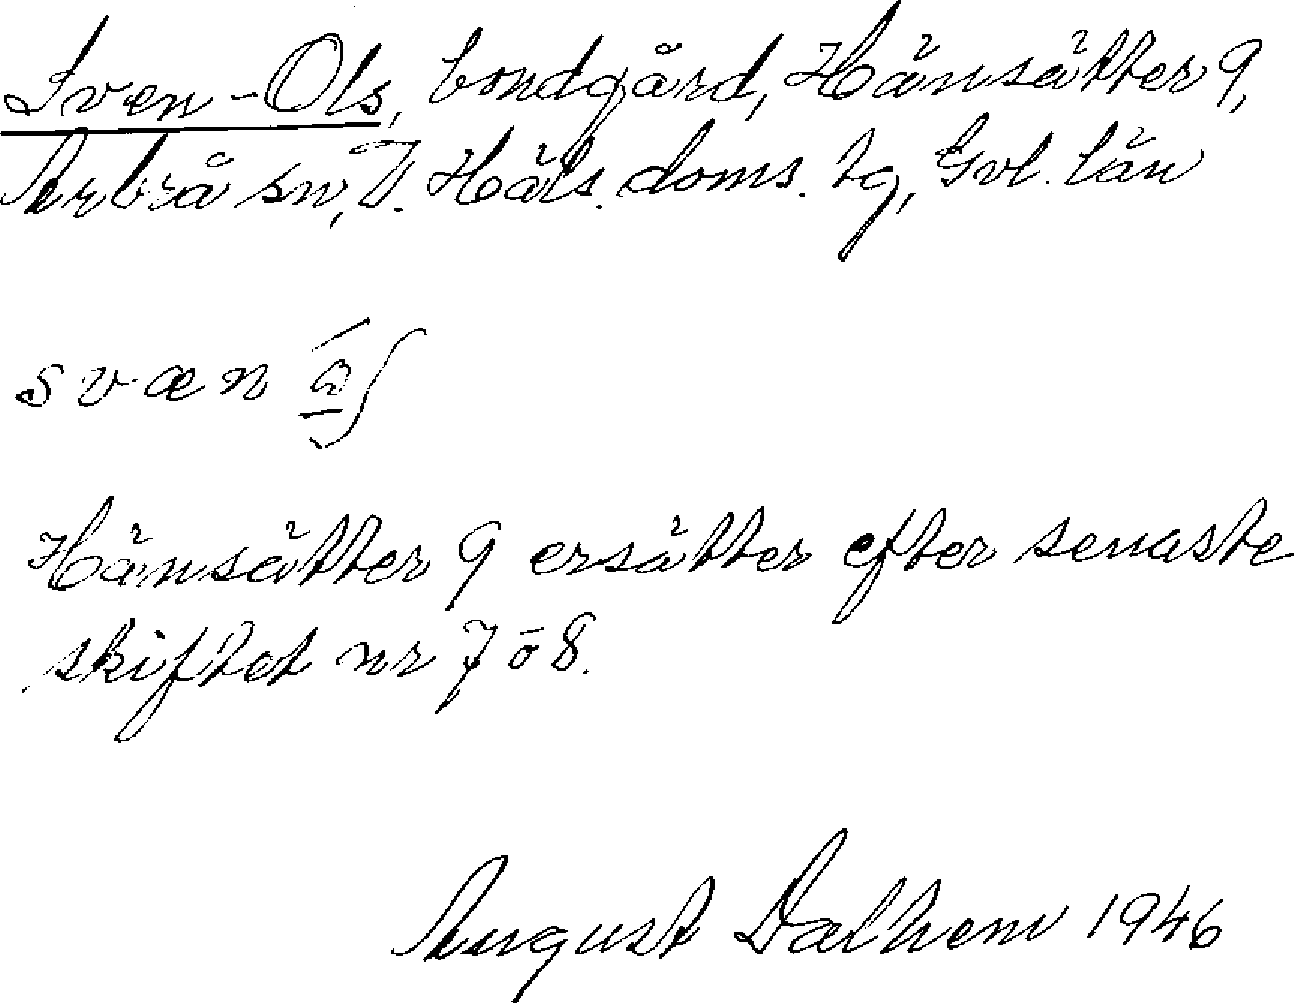 Sven-Ols, bondgård, Hänsätter 9,
Arbrå sn, V. Häls. doms. tg, Gvl. län
svæn
Hänsätter 9 ersätter efter senaste
skiftet nr 7 o 8.
August Dalhem 1946